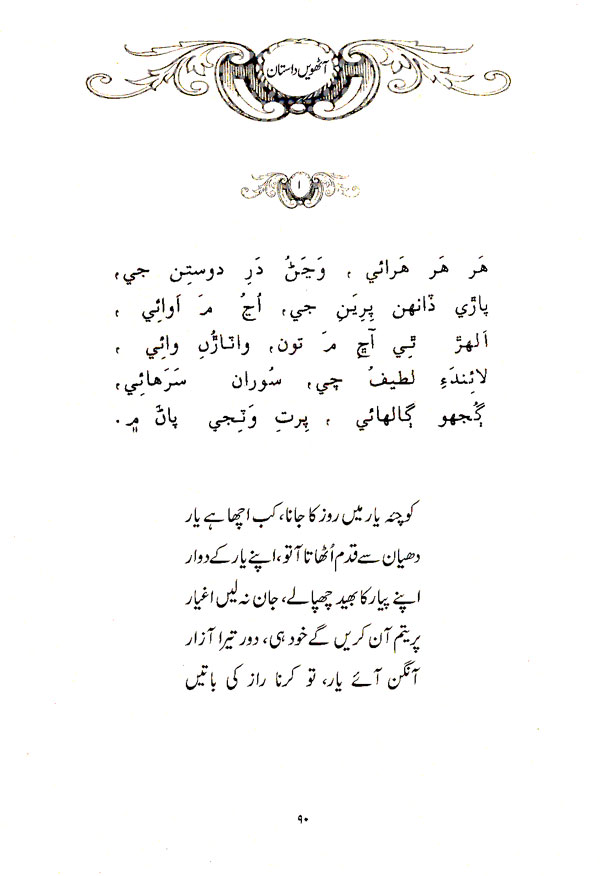 آٹھویں داستان
۱
هَر هَر هَرائي ، وَڃَڻُ دَرِ دوستِن جي،
پاڙي ڏانهن پِريَنِ جي، اُڃُ مَ اَوائِي ،
اَلهڙ ٿِي آڇ مَ تون، واٽاڙُنِ وائِي ،
لائِيندَءِ لطيفُ چي، سُوران سَرَهائِي،
ڳُجهو ڳالهائي ، پِرتِ وَنِجي پاڻَ ۾.
کوچئہ یار میں روز کا جانا، کب اچھا ہے یار
دھیان سے قدم اُٹھاتا آتو، اپنے یار کے دوار
اپنے پیار کا بھید چھپالے، جان نہ لیں اغیار
پریتم آن کریں گے خود ہی، دور تیرا آزار
آنگن آئے یار، تو کرنا راز کی باتیں
۹۰